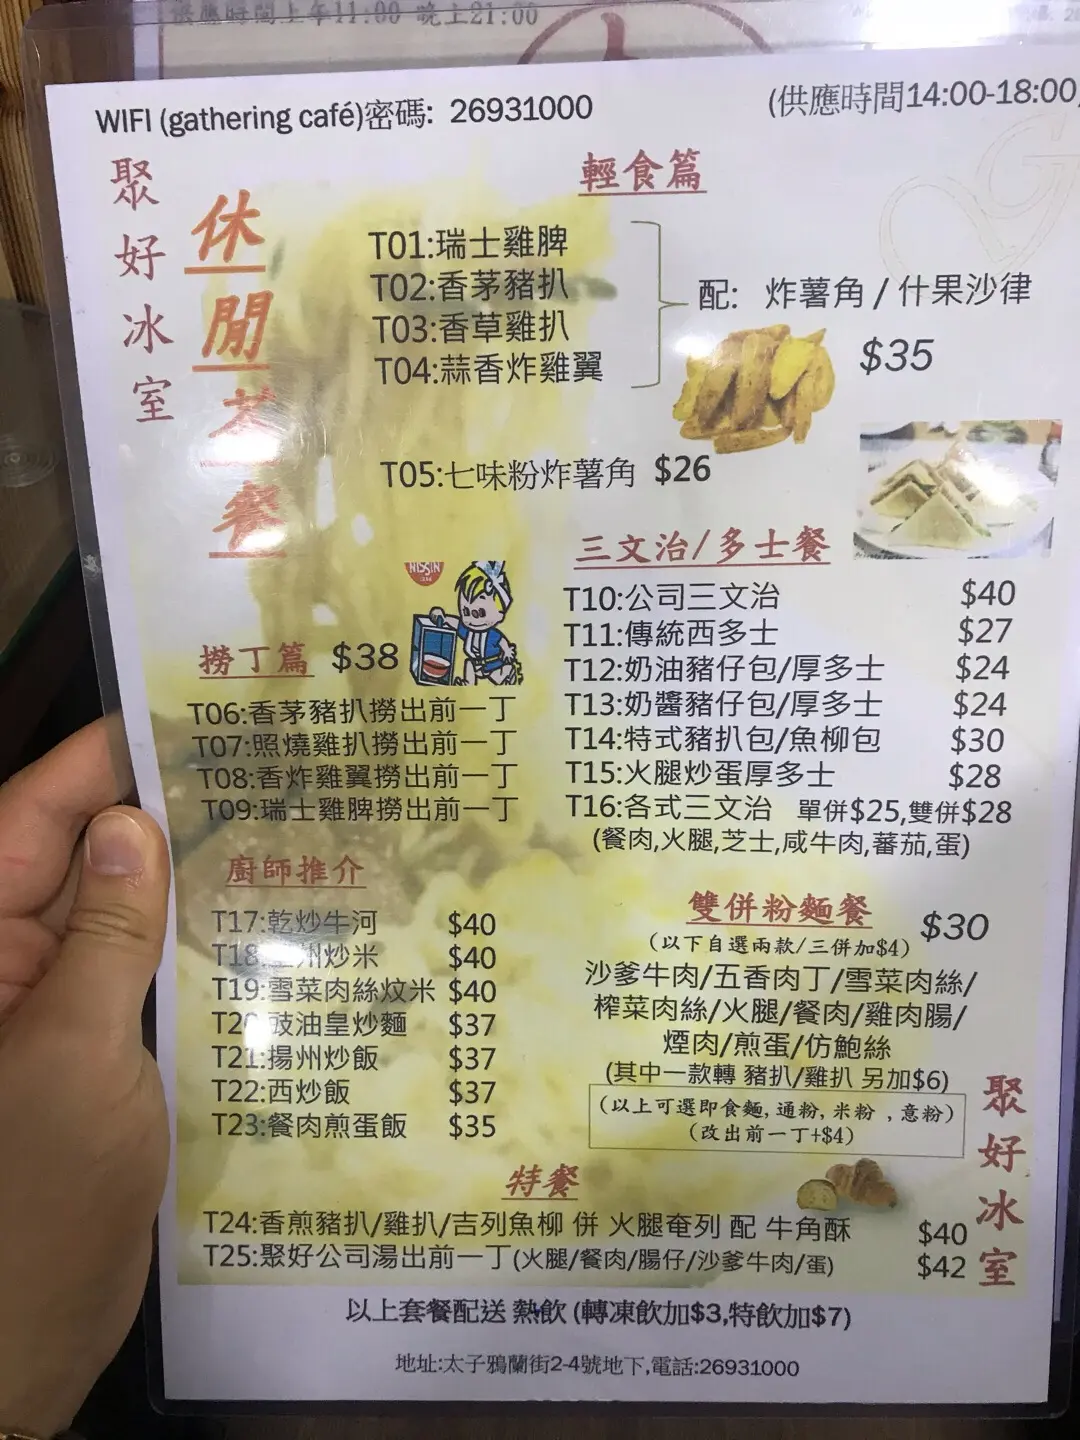 供應時間上午11:00 晚上21:00
WIFI (gathering café)密碼: 26931000
(供應時間14:00-18:00)
聚好冰室
休閒茶餐
輕食篇
T01:瑞士雞脾
T02:香茅豬扒
T03:香草雞扒
T04:蒜香炸雞翼
配: 炸薯角 / 什果沙律
$35
T05:七味粉炸薯角 $26
NISSIN
撈丁篇 $38
T06:香茅豬扒撈出前一丁
T07:照燒雞扒撈出前一丁
T08:香炸雞翼撈出前一丁
T09:瑞士雞脾撈出前一丁
三文治/多士餐
T10:公司三文治 $40
T11:傳統西多士 $27
T12:奶油豬仔包/厚多士 $24
T13:奶醬豬仔包/厚多士 $24
T14:特式豬扒包/魚柳包 $30
T15:火腿炒蛋厚多士 $28
T16:各式三文治 單併$25,雙併$28
(餐肉,火腿,芝士,咸牛肉,蕃茄,蛋)
廚師推介
T17:乾炒牛河 $40
T18:州炒米 $40
T19:雪菜肉絲炆米 $40
T20:豉油皇炒麵 $37
T21:揚州炒飯 $37
T22:西炒飯 $37
T23:餐肉煎蛋飯 $35
雙併粉麵餐 $30
(以下自選兩款/三併加$4)
沙爹牛肉/五香肉丁/雪菜肉絲/
榨菜肉絲/火腿/餐肉/雞肉腸/
煙肉/煎蛋/仿鮑絲
(其中一款轉 豬扒/雞扒 另加$6)
(以上可選即食麵,通粉,米粉 ,意粉)
(改出前一丁+$4)
聚好冰室
特餐
T24:香煎豬扒/雞扒/吉列魚柳 併 火腿奄列 配 牛角酥 $40
T25:聚好公司湯出前一丁(火腿/餐肉/腸仔/沙爹牛肉/蛋) $42
以上套餐配送 熱飲 (轉凍飲加$3,特飲加$7)
地址:太子鴉蘭街2-4號地下,電話:26931000